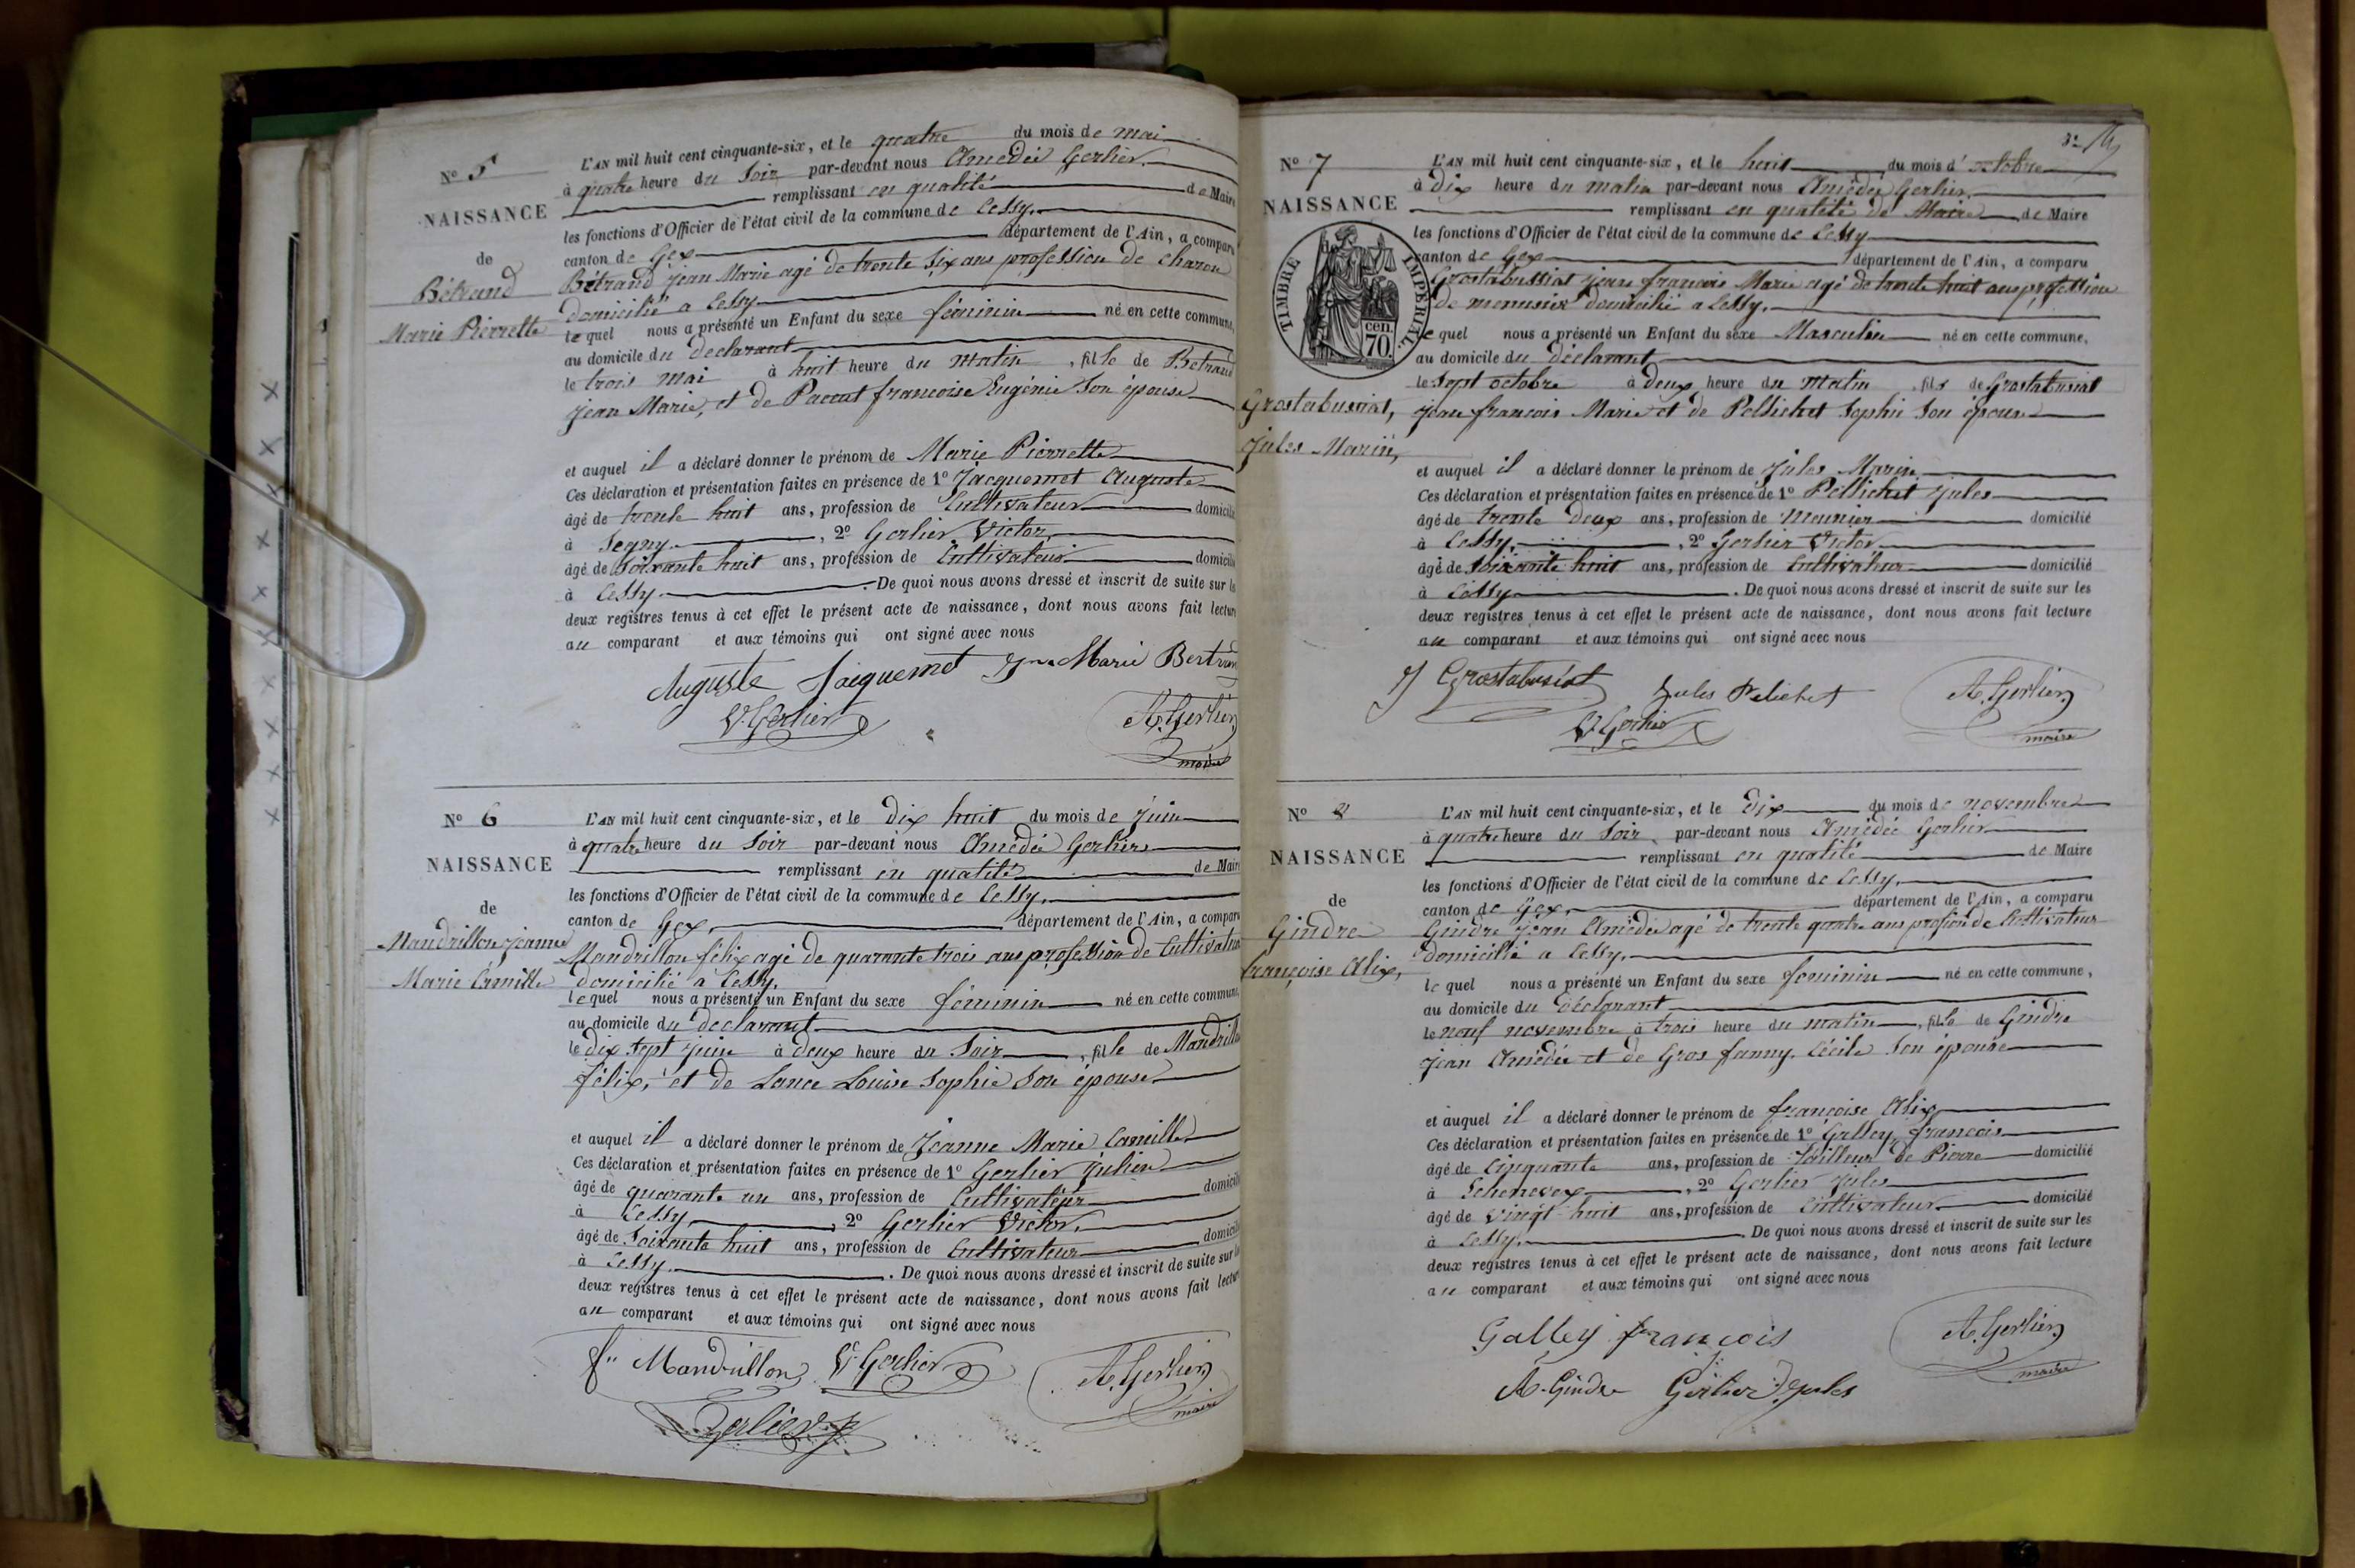 N.º 5
NAISSANCE
de
Bétrand
Marie Pierrette
L'AN mil huit cent cinquante-six, et le quatre du mois de mai
à quatre heure du Soir par-devant nous Amédée Gerlier
remplissant en qualité de Maire
les fonctions d'Officier de l'état civil de la commune de Cessy.
canton de Gex département de l'Ain, a comparu
Bétrand jean Marie agé de trente six ans profession de charon
domicilié a Cessy
lequel nous a présenté un Enfant du sexe féminin né en cette commune,
au domicile du declarant
le trois mai à huit heure du matin, fille de Betrand
jean Marie, et de Paccut francoise Eugénie Son épouse
et auquel il a déclaré donner le prénom de Marie Pierrette
Ces déclaration et présentation faites en présence de 1º Jacquemet Auguste
âgé de trente huit ans, profession de Cultivateur domicilié
à Segny, 2º Gerlier Victor,
âgé de Soixante huit ans, profession de Cultivateur domicilié
à Cessy. De quoi nous avons dressé et inscrit de suite sur les
deux registres tenus à cet effet le présent acte de naissance, dont nous avons fait lecture
au comparant et aux témoins qui ont signé avec nous
Auguste Jaiquemet Jn Marie Bertrand
V. Gerlier A. Gerlier
maire
Nº 6
NAISSANCE
de
Mandrillon jeanne
Marie Camille
L'AN mil huit cent cinquante-six, et le Dix huit du mois de Juin
à quatre heure du Soir par-devant nous Amédée Gerlier
remplissant en qualité de Maire
les fonctions d'Officier de l'état civil de la commune de Cessy.
canton de Gex, département de l'Ain, a comparu
Mandrillon félix agé de quarante trois ans profession de Cultivateur
domicilié à Cessy.
lequel nous a présenté un Enfant du sexe féminin né en cette commune,
au domicile du declarant
le dix Sept juin à deux heure du Soir, fille de Mandrillon
félix, et de Lance Louise Sophie Son épouse
et auquel il a déclaré donner le prénom de Jeanne Marie Camille
Ces déclaration et présentation faites en présence de 1º Gerlier Julien
âgé de quarante un ans, profession de Cultivateur domicilié
à Cessy, 2º Gerlier Victor,
âgé de Soixante huit ans, profession de Cultivateur domicilié
à Cessy. De quoi nous avons dressé et inscrit de suite sur les
deux registres tenus à cet effet le présent acte de naissance, dont nous avons fait lecture
au comparant et aux témoins qui ont signé avec nous
fx Mandrillon Vr Gerlier A. Gerlier
maire
Gerlier J
Nº 7
NAISSANCE
TIMBRE IMPERIAL
cen.
70.
Grostabussiat,
Jules Marin,
L'AN mil huit cent cinquante-six, et le huit du mois d'octobre
à Dix heure du matin par-devant nous Amédée Gerlier
remplissant en qualité de Maire de Maire
les fonctions d'Officier de l'état civil de la commune de Cessy
canton de Gex département de l'Ain, a comparu
Grostabussiat jean francois Marie agé de trente huit ans profession
de menusier domicilié a Cessy,
lequel nous a présenté un Enfant du sexe Masculin né en cette commune,
au domicile du déclarant,
le Sept octobre à deux heure du matin, fils de Grostabusiat
jean francois Marie et de Pellichet Sophie Son épouse
et auquel il a déclaré donner le prénom de Jules Marin
Ces déclaration et présentation faites en présence de 1º Pellichet Jules
âgé de trente deux ans, profession de Meunier domicilié
à Cessy, 2º Gerlier Victor
âgé de Soixante huit ans, profession de Cultivateur domicilié
à Cessy. De quoi nous avons dressé et inscrit de suite sur les
deux registres tenus à cet effet le présent acte de naissance, dont nous avons fait lecture
au comparant et aux témoins qui ont signé avec nous
J Grostabusiat Jules Pelichet A. Gerlier
V Gerlier maire
Nº
NAISSANCE
de
Gindre
françoise Alix,
L'AN mil huit cent cinquante-six, et le Dix du mois de novembre
à quatre heure du Soir par-devant nous Amédée Gerlier
remplissant en qualité de Maire
les fonctions d'Officier de l'état civil de la commune de Cessy,
canton de Gex, département de l'Ain, a comparu
Gindre Jean Amédée agé de trente quatre ans profsion de Cultivateur
domicilié a Cessy,
lequel nous a présenté un Enfant du sexe feminin né en cette commune,
au domicile du déclarant
le neuf novembre à trois heure du matin, fille de Gindre
jean Amédée et de Gros fanny Cécile Son épouse
et auquel il a déclaré donner le prénom de françoise Alix
Ces déclaration et présentation faites en présence de 1º Galley francois
âgé de Cinquante ans, profession de tailleur de Pierre domicilié
à Echenevex, 2º Gerlier Jules
âgé de vingt huit ans, profession de Cultivateur domicilié
à Cessy. De quoi nous avons dressé et inscrit de suite sur les
deux registres tenus à cet effet le présent acte de naissance, dont nous avons fait lecture
au comparant et aux témoins qui ont signé avec nous
Galley françois A. Gerlier
maire
A. Gindre Gerlier Jules